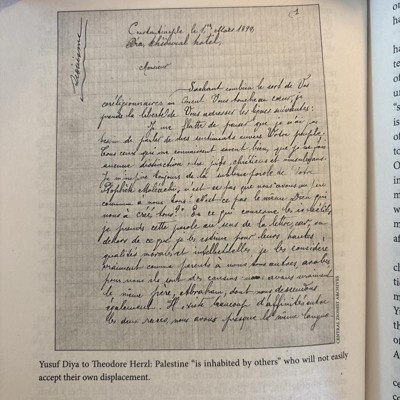 1
Sionisme
Constantinople le 1er Mars 1899
Pera, Khédivial Hotel,
Monsieur
Sachant combien le sort de Vos
coreligionnaires en Orient Vous touche au cœur, je
prends la liberté de Vous adresser les lignes suivantes:
Je me flatte de penser que je n'ai pas
besoin de parler de mes sentiments envers Votre peuple.
Tous ceux qui me connaissent savent bien, que je ne fais
aucune distinction entre juifs, chrétiens et musulmans.
Je m'inspire toujours de la sublime parole de Votre
Prophète Malachi, n'est-ce pas que nous avons un père
commun à nous tous? N'est-ce pas le même Dieu qui
nous a créés tous? En ce qui concerne les israélites
je prends cette parole au sens de la lettre, car, en
dehors de ce que je les estime pour leurs hautes
qualités morales et intellectuelles, je les considère
vraiment comme parents à nous autres arabes,
pour nous ils sont des cousins, nous avons vraiment
le même père, Abraham, dont nous descendons
également. Il existe beaucoup d'affinités entre
les deux races, nous avons presque la même langue.
CENTRAL ZIONIST ARCHIVES
Yusuf Diya to Theodore Herzl: Palestine “is inhabited by others” who will not easily
accept their own displacement.